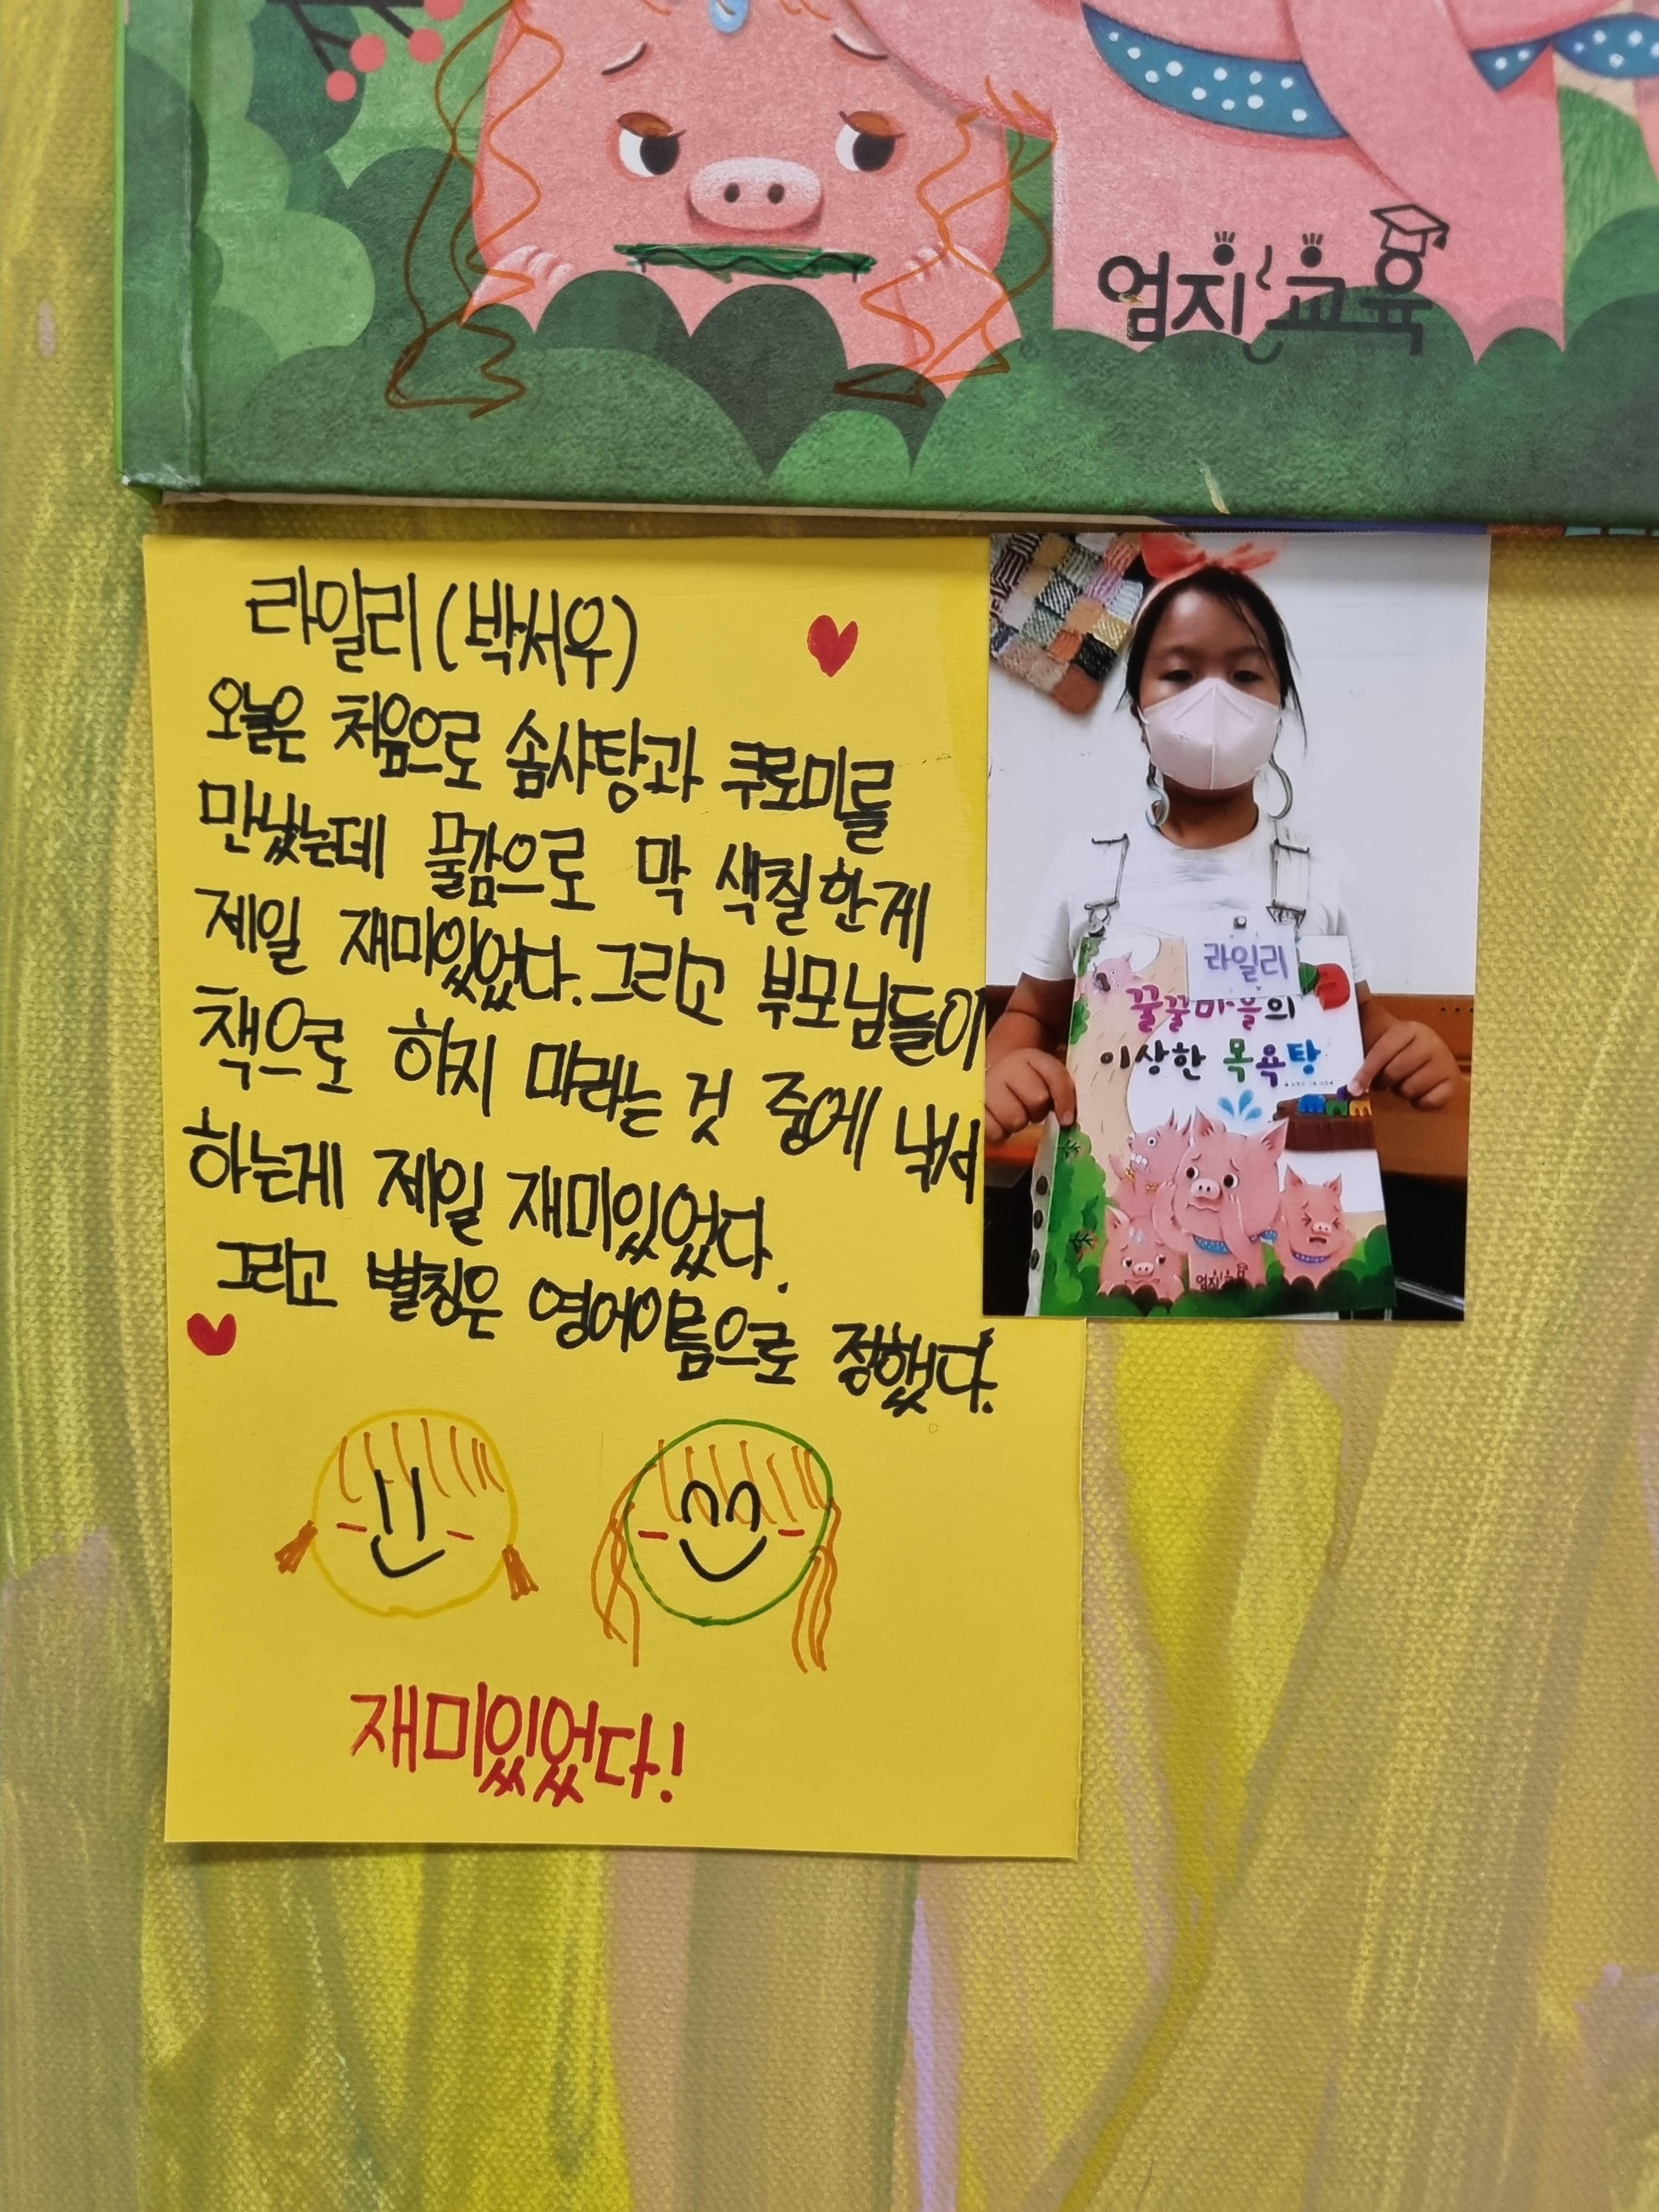 엄지교육
라일리(박서우)
오늘은 처음으로 솜사탕과 쿠로미를
만났는데 물감으로 막 색칠한게
제일 재미있었다. 그리고 부모님들이
책으로 하지 마라는 것 중에 낙서
하는게 제일 재미있었다.
그리고 별칭은 영어이름으로 정했다.
재미있었다!
라일리
꿀꿀마을의
이상한 목욕탕
엄지교육